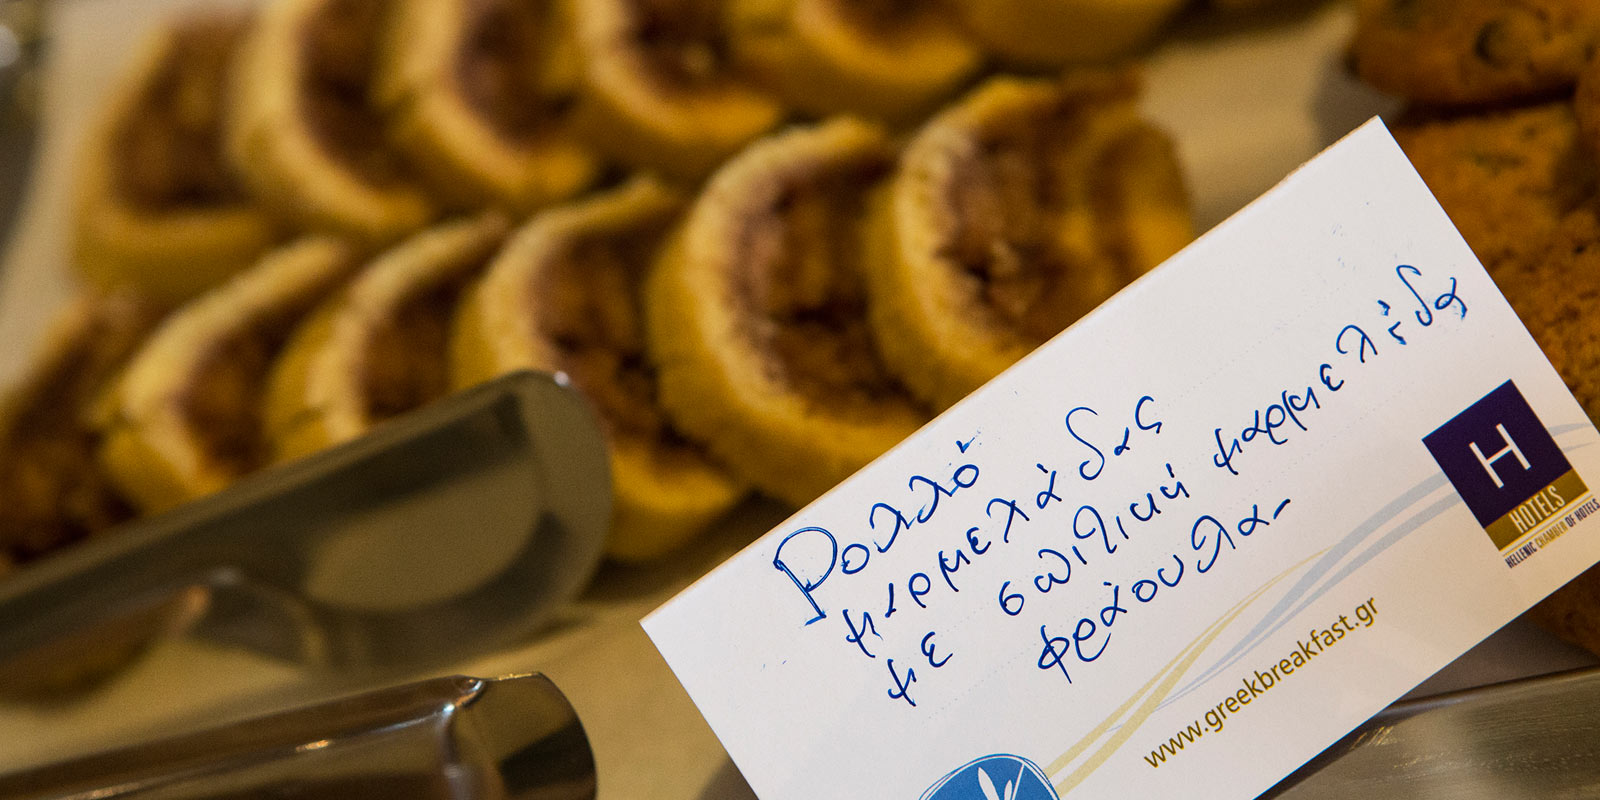 Ρολλό
μαρμελάδας
με σπιτική μαρμελάδα
φράουλα-
H
HOTELS
HELLENIC CHAMBER OF HOTELS
www.greekbreakfast.gr